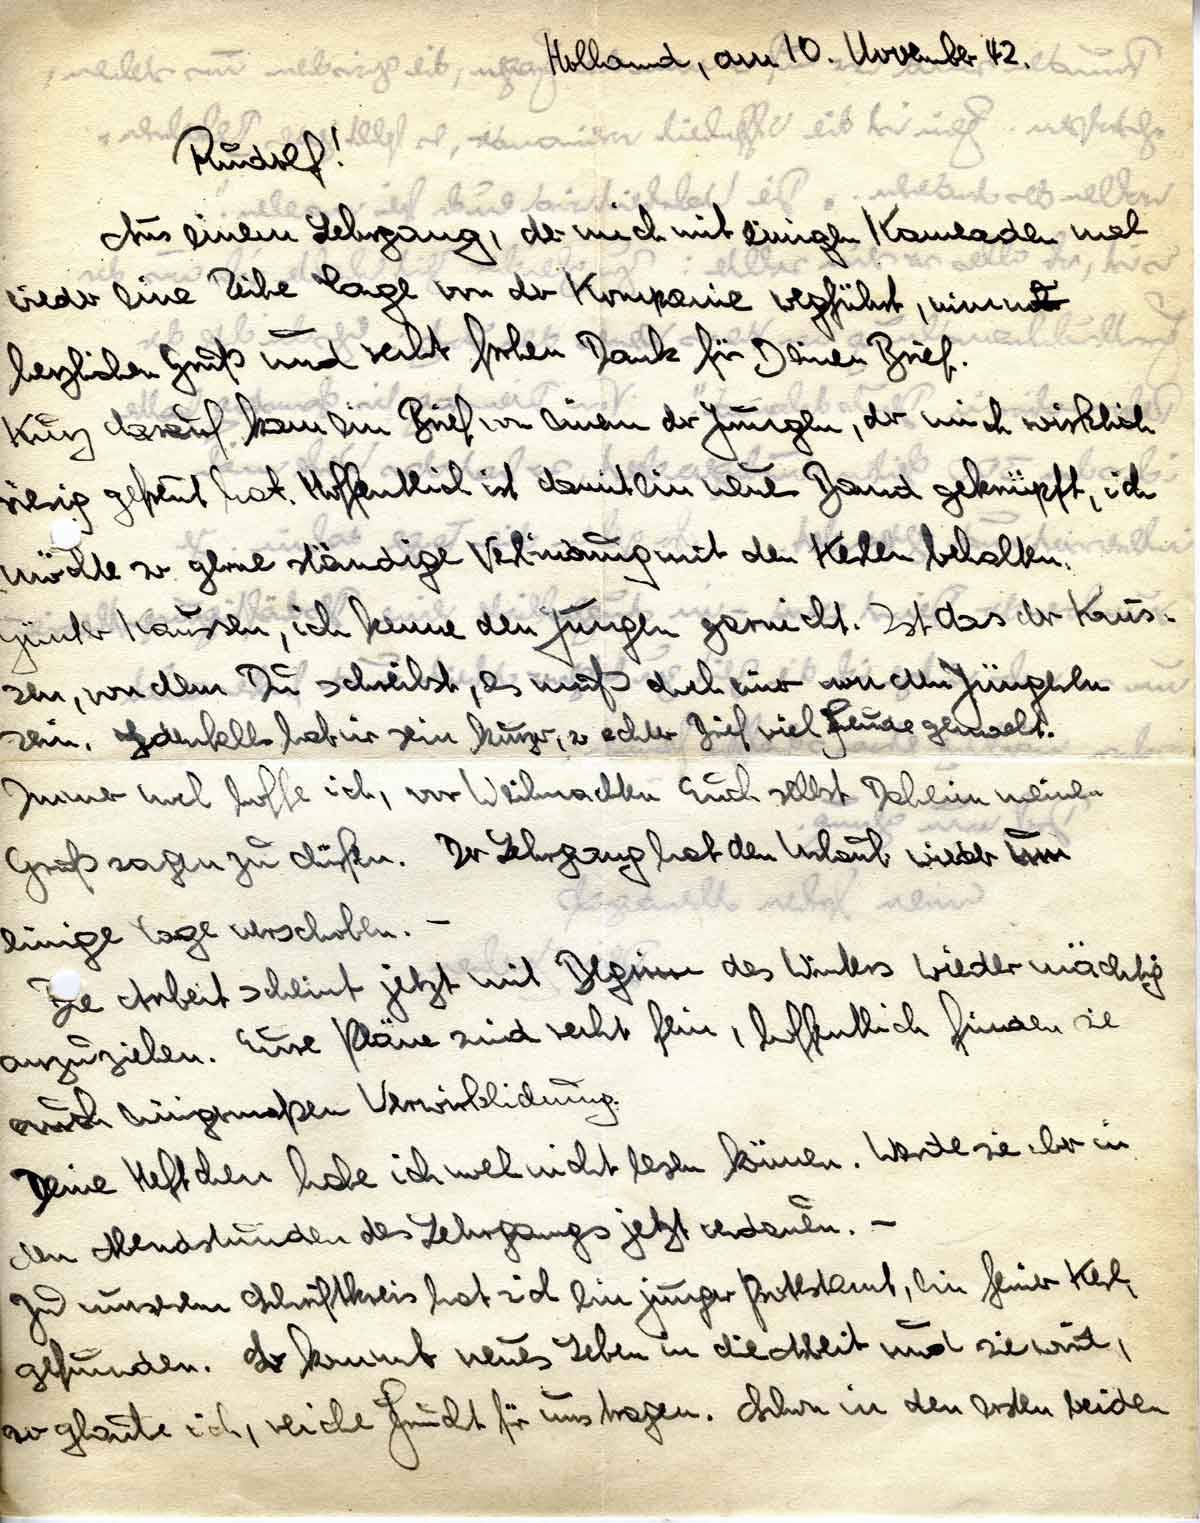 Holland, am 10. November 42.
Rudolf!
Aus einem Lehrgang, der mich mit einigen Kameraden mal
wieder eine Reihe Tage von der Kompanie wegführt, nimm
herzlichen Gruß und recht frohen Dank für Deinen Brief.
Kurz darauf kam ein Brief von einem der Jungen, der mich wirklich
riesig gefreut hat. Hoffentlich ist damit ein neues Band geknüpft, ich
möchte so gerne ständige Verbindung mit den Kerlen behalten.
Günter Kaussen, ich kenne den Jungen garnicht. Ist das der Kaus-
sen, von dem Du schreibst, es muß doch einer von den Jüngeren
sein. Jedenfalls hat mir sein kurzer, so echter Brief viel Freude gemacht.
Immer noch hoffe ich, vor Weihnachten Euch selbst Daheim meinen
Gruß sagen zu dürfen. Der Lehrgang hat den Urlaub wieder um
einige Tage verschoben. –
Die Arbeit scheint jetzt mit Beginn des Winters wieder mächtig
anzuziehen. Eure Pläne sind recht fein, hoffentlich finden sie
auch einigermaßen Verwirklichung.
Deine Heftchen habe ich noch nicht lesen können. Werde sie aber in
den Abendstunden des Lehrgangs jetzt verdauen. –
Zu unserem Schriftkreis hat sich ein junger Protestant, ein feiner Kerl,
gefunden. So kommt neues Leben in die Arbeit und sie wird,
so glaube ich, reiche Frucht für uns tragen. Schon in den ersten beiden